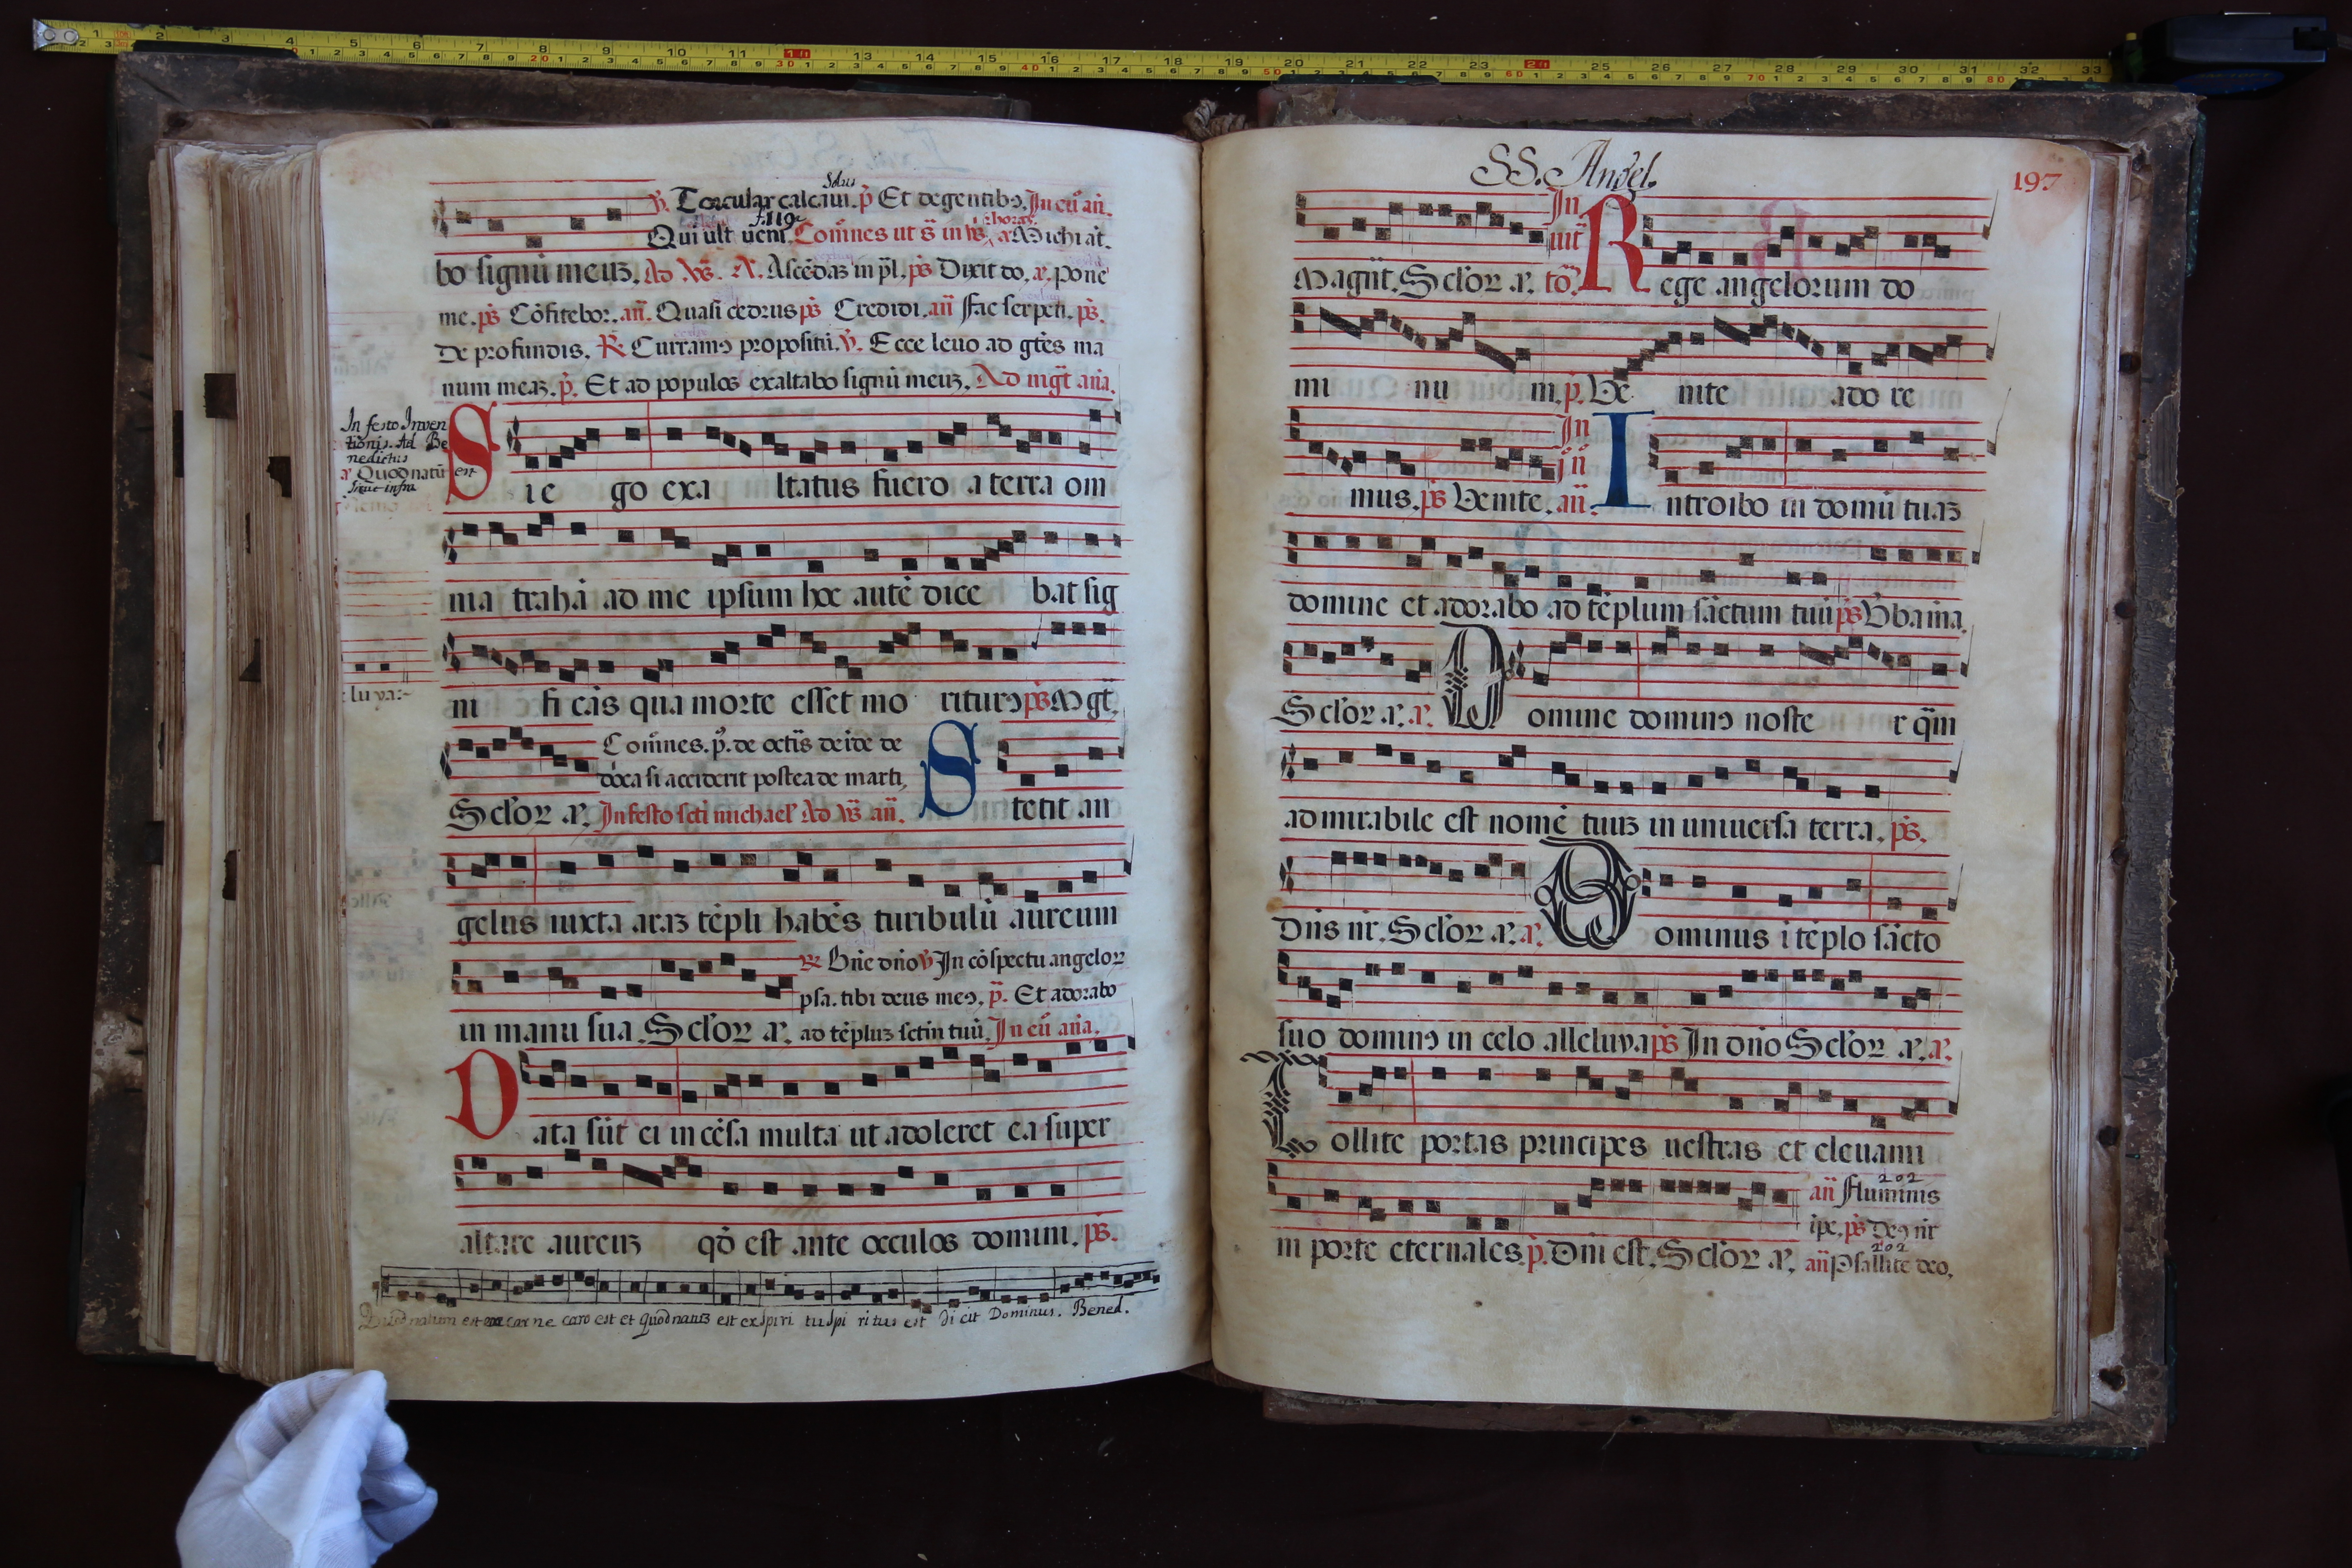 Solus
v. Torcular calcaui. p̃ Et de gentibꝰ. In eu̇ añ.
f. 119
Qui uult uenr̄. Com̄nes ut s̄ in
Michi at.
bo signū meuz. Ad A. Ascēdaz in pl̄. ps̄ Dixit do, a. pone
me. ps̄ Cōfitebor. añ. Quasi cedrus ps̄ Credidi. añ fac serpētē. ps̄.
De profundis. R Curramꝰ propositū. v. Ecce leuo ad gt̄es ma
num meaz. p̃. Et ad populos exaltabo signū meuz. Ad mgt̄ aña.
In festo Inven
tionis. Ad Be
nedictus
a Quod natū est
require infra
Sic e go exa ltatus fuero a terra om
nia trahā ad me ipsum hoc autē dice bat sig
ni fi cās qua morte esset mo riturꝰ ps̄ Mgt̄.
lu ya:~
Com̄nes. p̃. de octīs deīde de
dōca si acciderit postea de marti,
Sclor a. In festo scti michael' Ad vs̄ añ. Stetit an
gelus iuxta araz tēpli habēs turibulū aureum
R Bn̄e dn̄o v In cōspectu angeloꝝ
psa. tibi deus meꝰ, p̃. Et adorabo
in manu sua. Sclor a. ad tēpluz sctm tuū. In eu̇ aña.
Data sūt ei incēsa multa ut adoleret ea super
altare aureuz qd̄ est ante occulos domini. ps̄.
Quod natum est ex carne caro est et quod natuz est ex spiri tu spi ritus est dicit Dominus. Bened.
SS. Angel.
197
In
uit̄
Magnt̄. Sclor a. to. Rege angelorum do
mi nu m. p̃. Ve nite ado re
In
j n̄
mus. ps̄ Venite. añ. Introibo in domū tuaz
domine et adorabo ad tēplum sāctum tuū ps̄ Vba mea.
Sclor a. a. Domine dominꝰ noste r q̄m
admirabile est nomē tuuz in uniuersa terra. ps̄.
Dn̄s nr̄. Sclor a. a. Dominus ī tēplo sācto
suo dominꝰ in celo alleluya ps̄ In dn̄o Sclor a. a.
Tollite portas principes uestras et eleuami
202
añ Fluminis
ipe. ps̄ Deꝰ nr̄
ni porte eternales. p̃. Dn̄i est. Sclor a. añ Psallite deo.
202